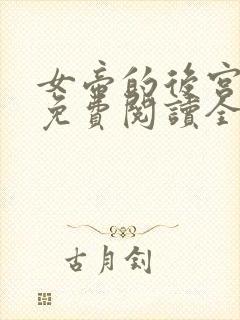 女帝的後宮
免費閱讀全
古月釗